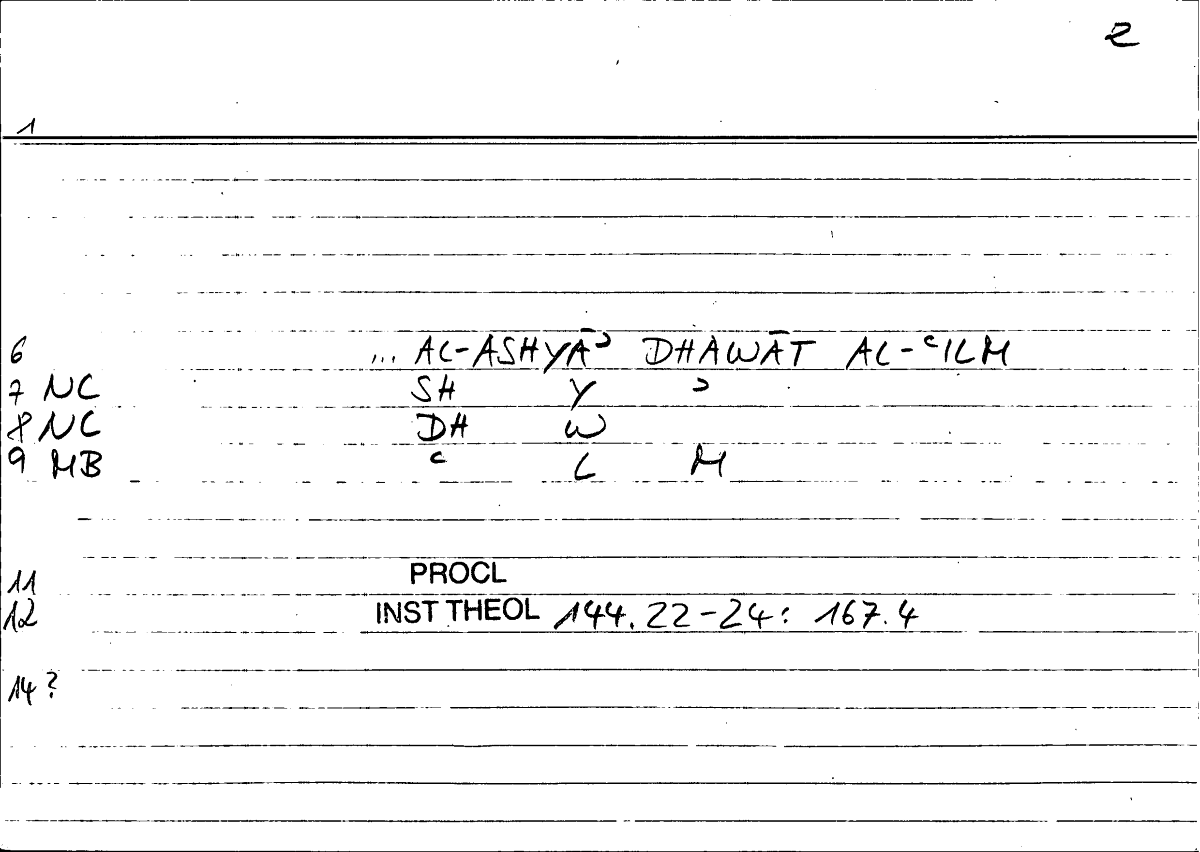 2
1
6 ... AL-ASHYĀʾ DHAWĀT AL-ʿILM
7 NC SH Y ʾ
8 NC DH W
9 MB ʿ L M
11 PROCL
12 INST THEOL 144.22-24: 167.4
14?